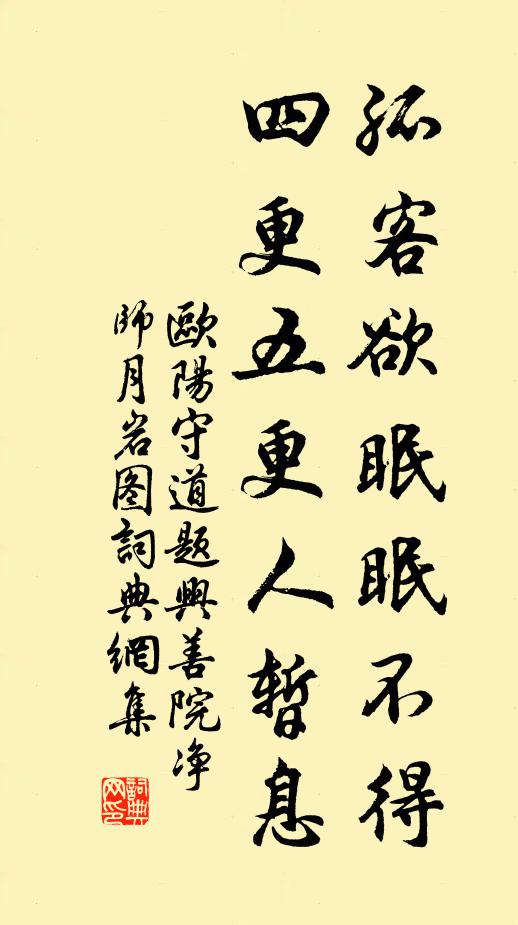 孤客欲眠眠不得
四更五更人暫息
歐陽守道題興善院净
师月岩图詞典網集
詞典网印